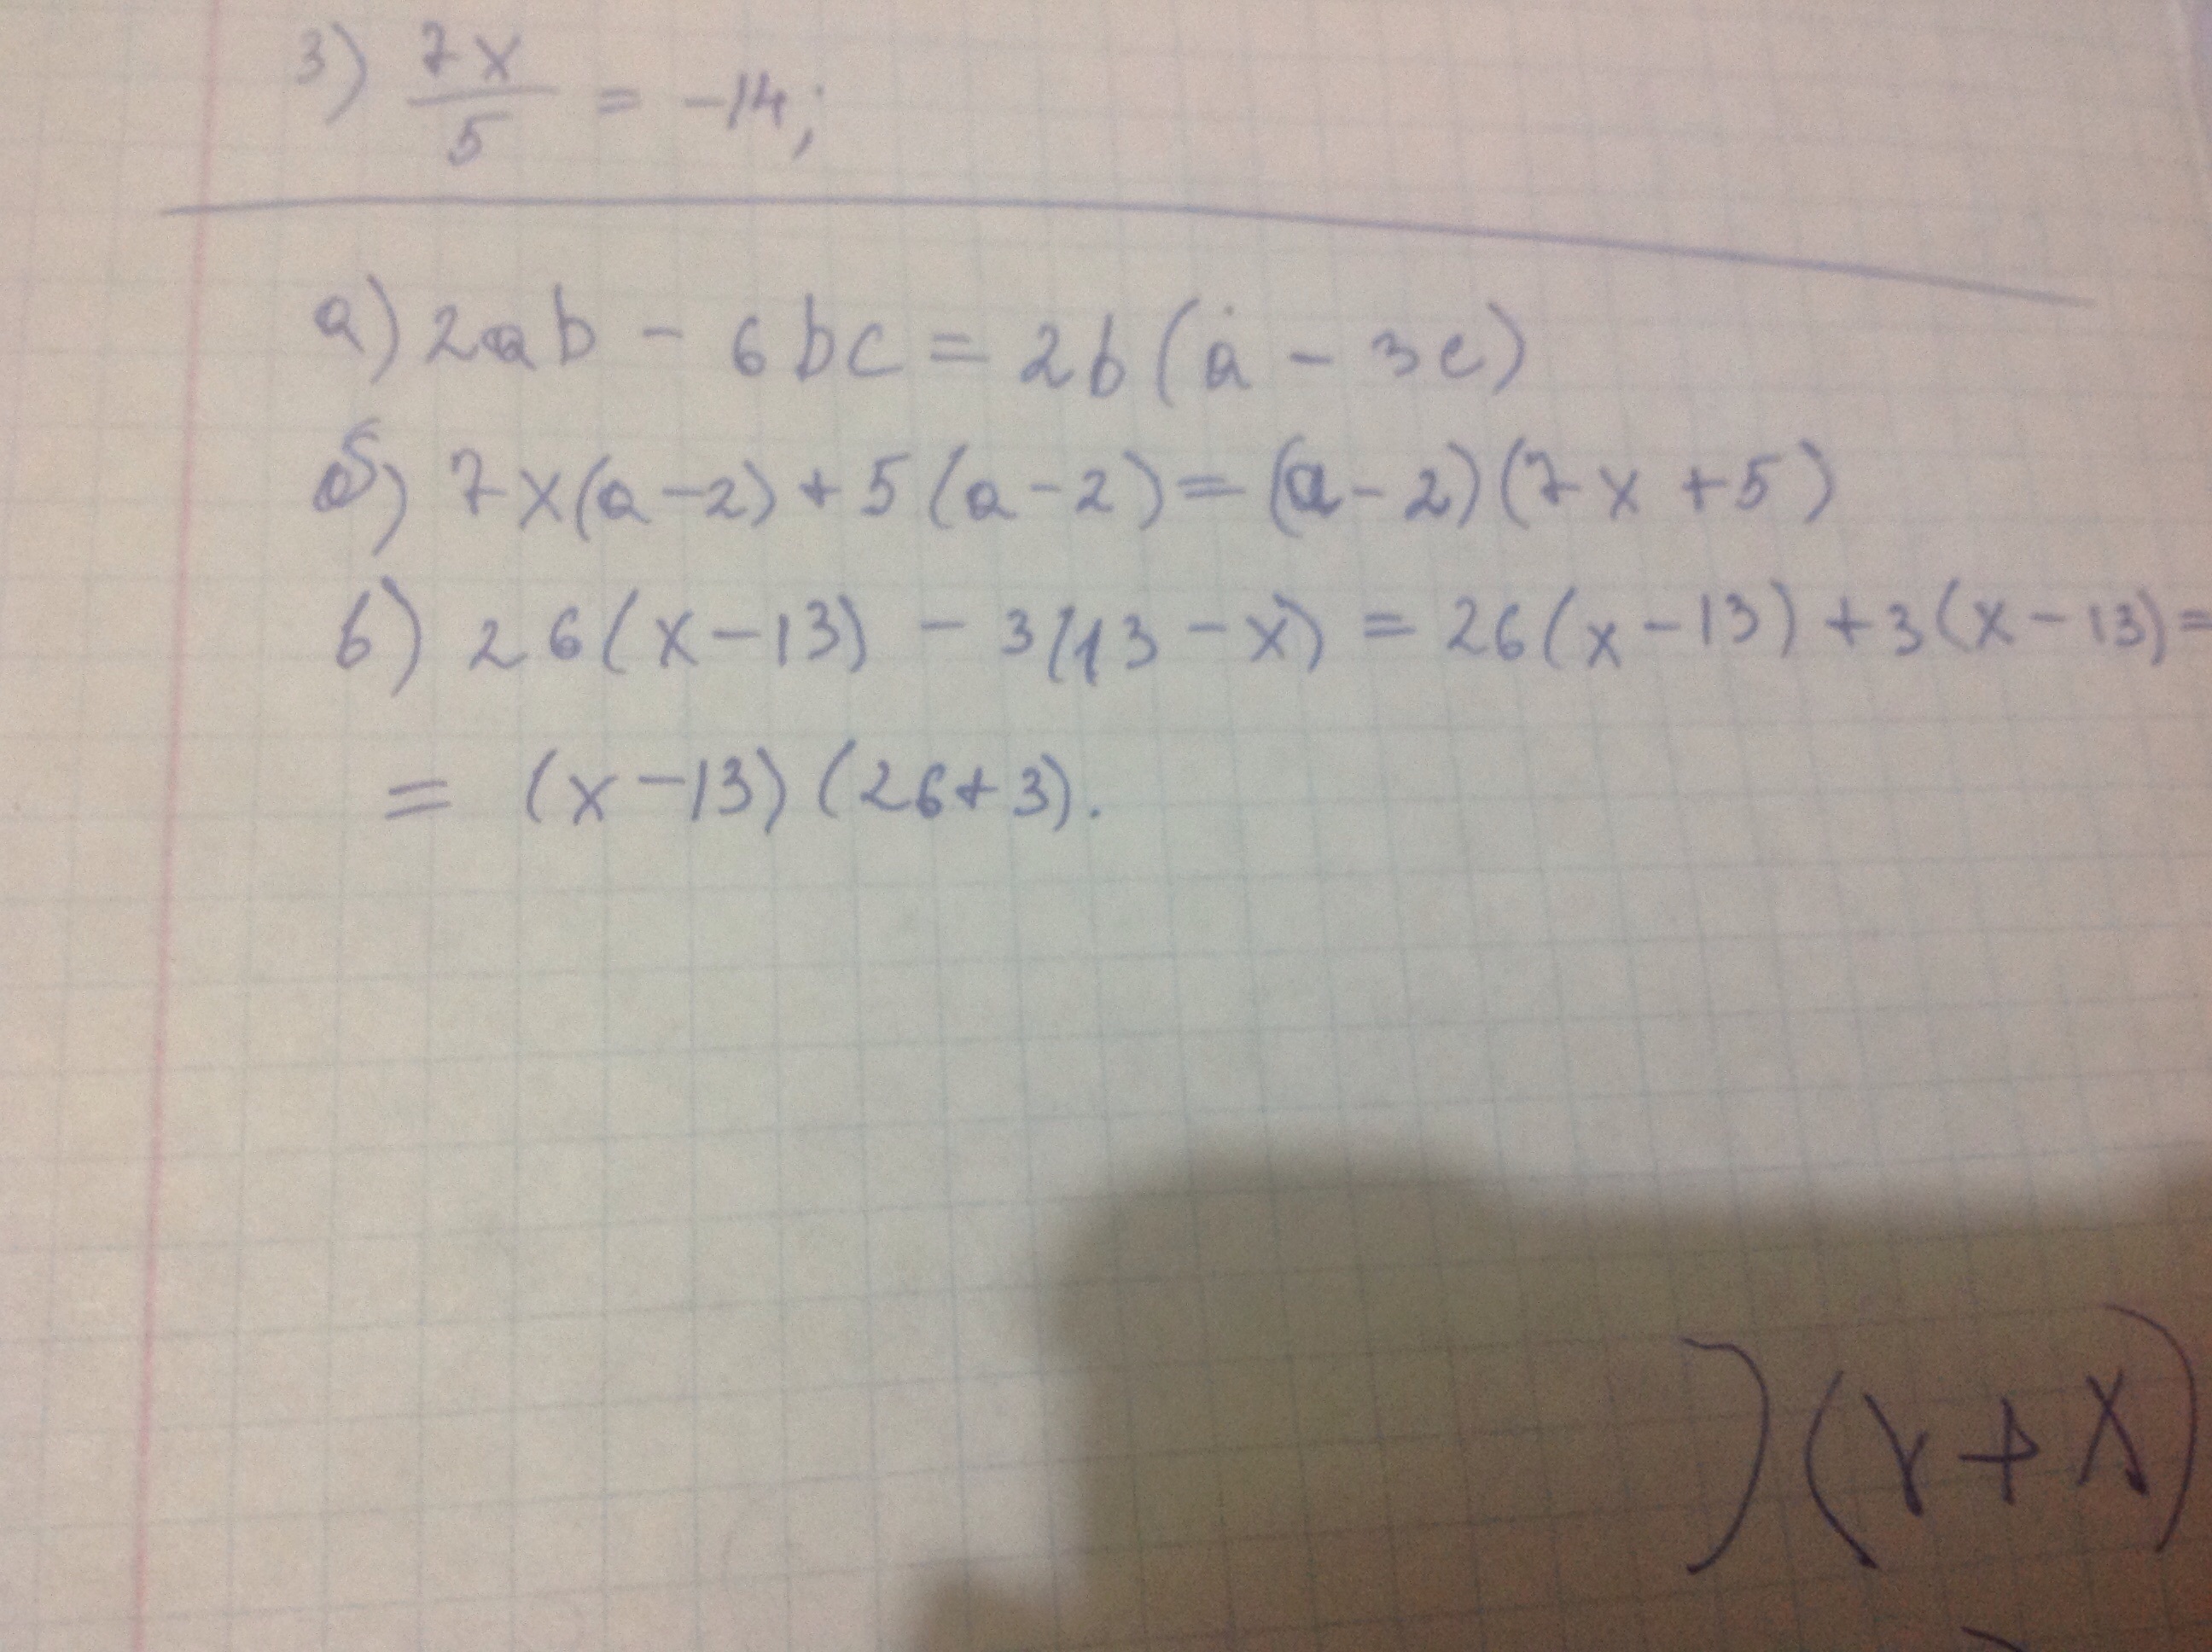 3) 7x/5 = -14;
а) 2ab - 6bc = 2b(a - 3c)
б) 7x(a-2) + 5(a-2) = (a-2)(7x+5)
в) 26(x-13) - 3(13-x) = 26(x-13) + 3(x-13) =
= (x-13)(26+3).
)(y+x)